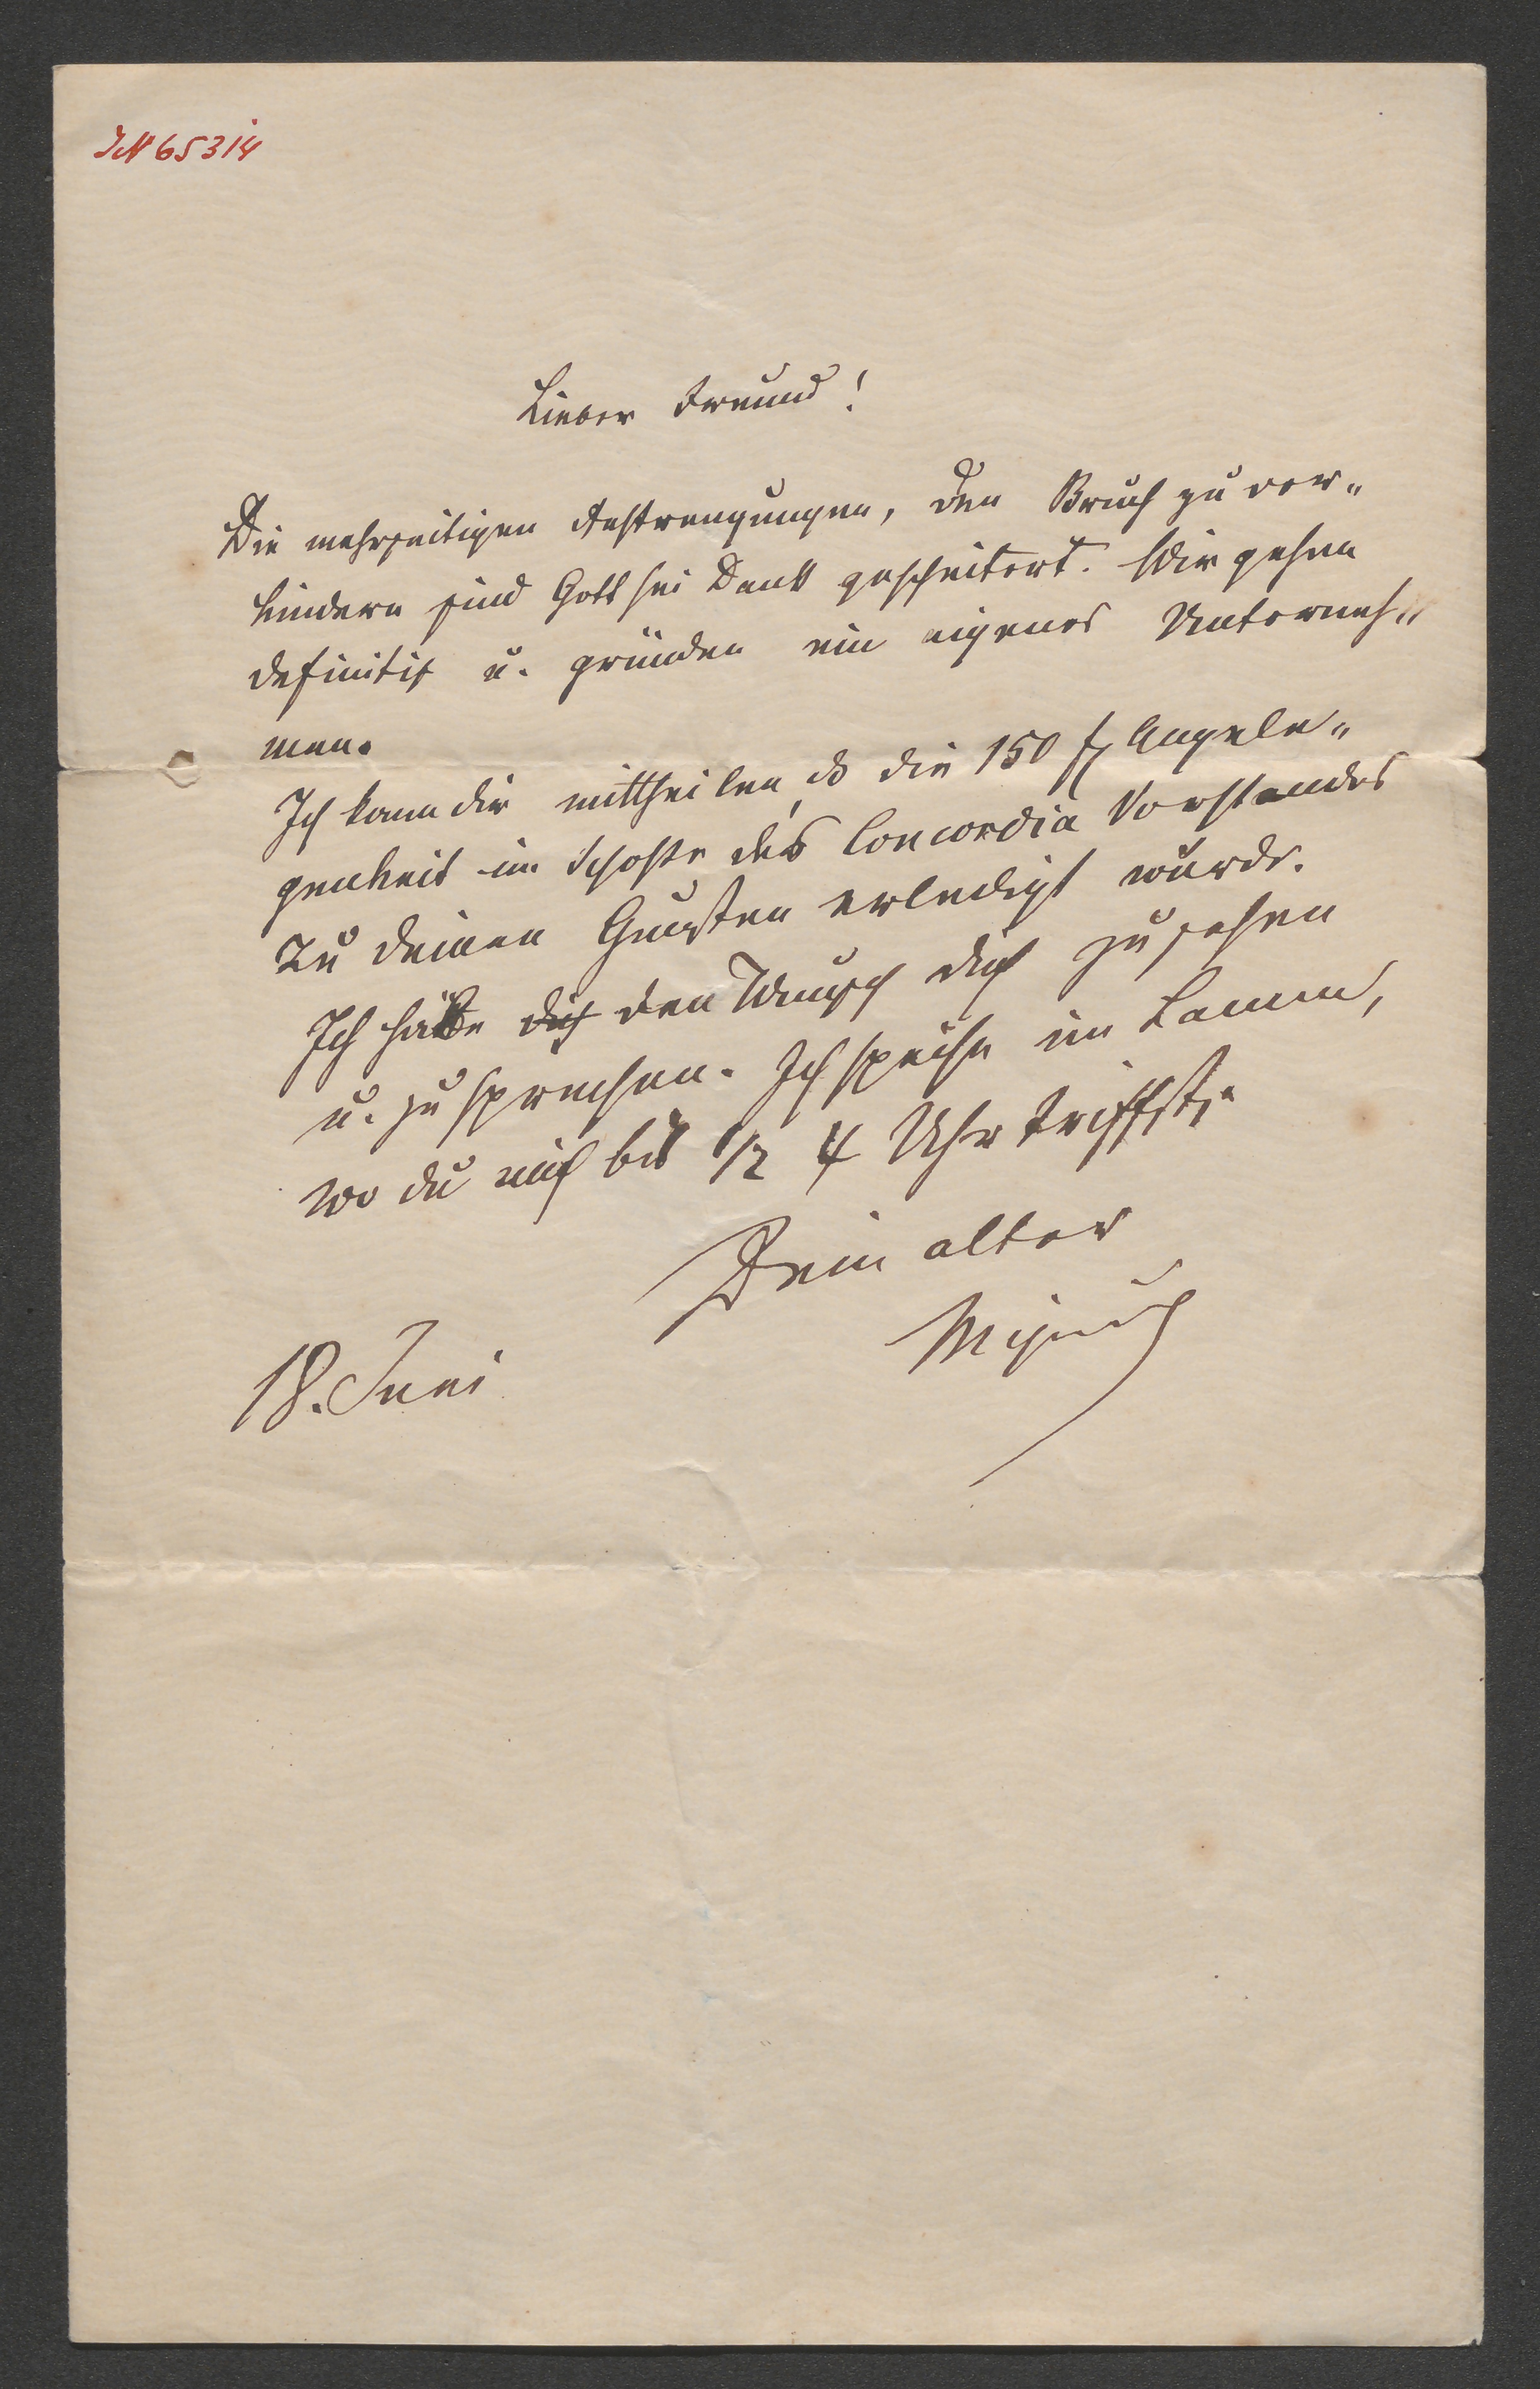 IN 65314
Lieber Freund!
Die mehrseitigen Anstrengungen, den Bruch zu ver„
hindern sind Gott sei Dank gescheitert. Wir gehen
definitif u. gründen ein eigenes Unterneh„
men.
Ich kann dir mittheilen, ds die 150 fl Angele„
genheit im Schoße des Concordia Vorstandes
zu deinen Gunsten erledigt wurde.
Ich hätte dich den Wunsch dich zu sehen
u. zu sprechen. Ich speise im Lamm,
wo du mich bis 1/2 4 Uhr triffst.
Dein alter
18. Juni